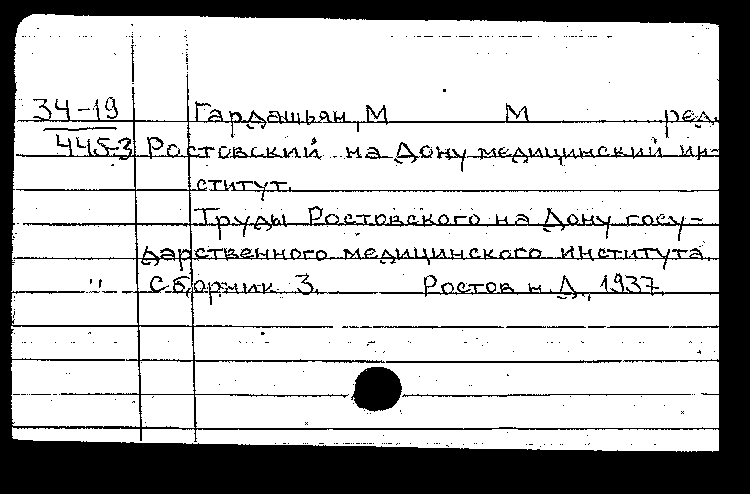 34-19 Гардашьян, М М ред.
445-3 Ростовский на Дону медицинский ин-
ститут.
Труды Ростовского на Дону госу-
дарственного медицинского института.
" Сборник 3. Ростов н. Д., 1937.